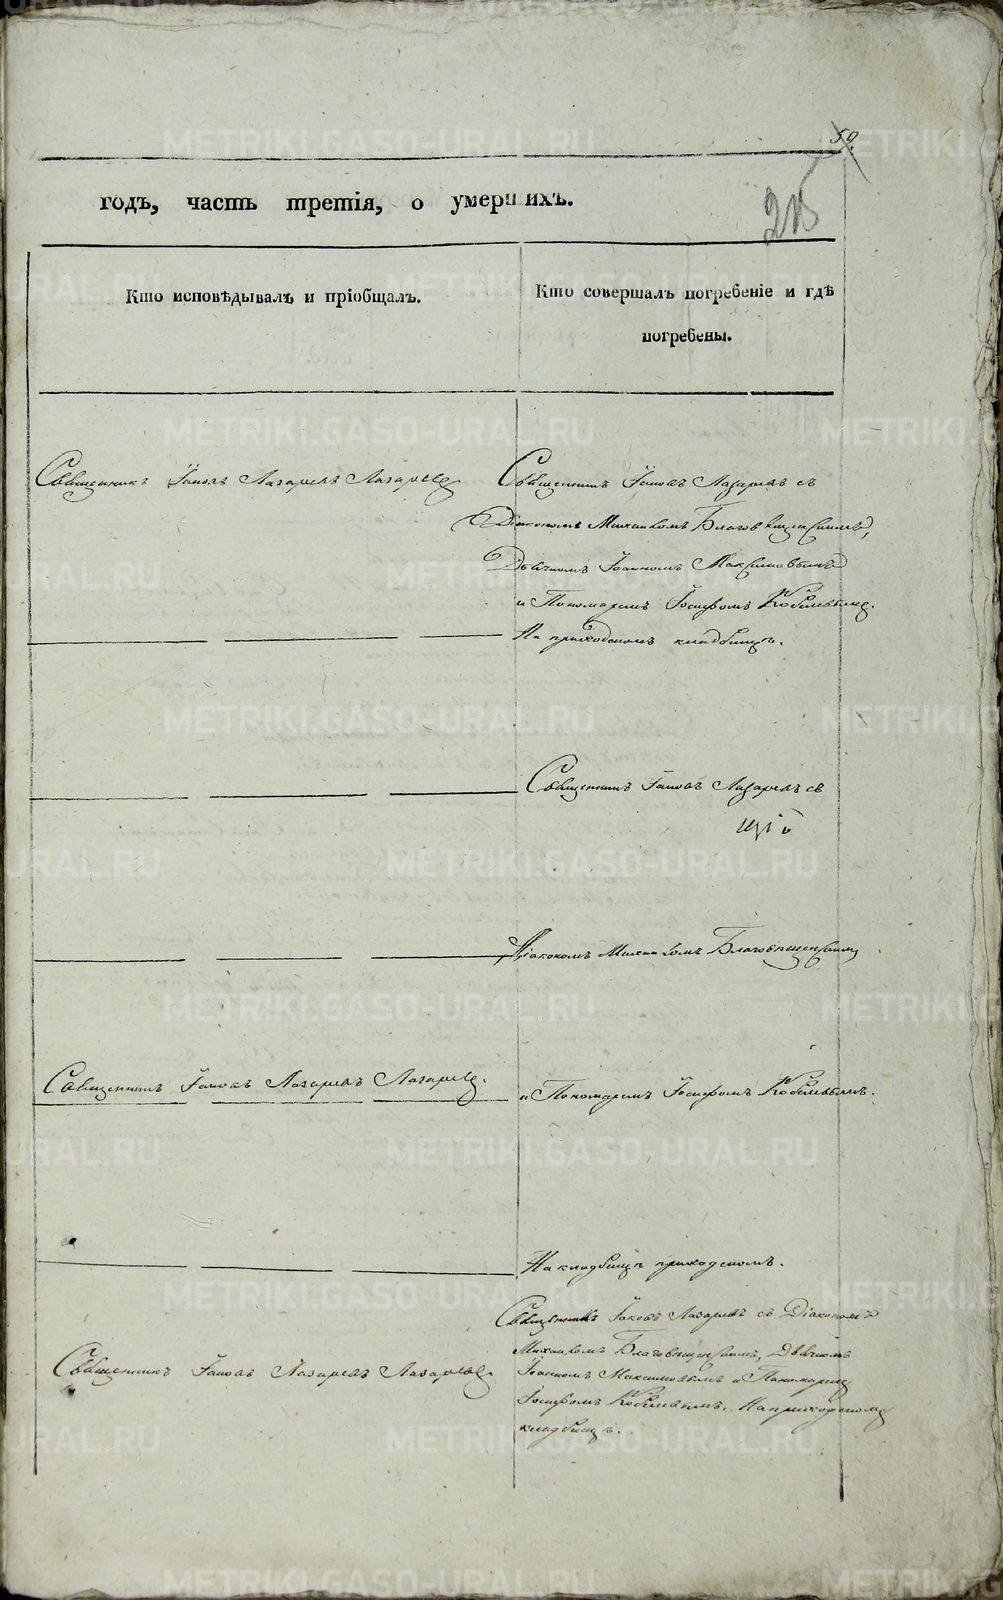 59.
215
годъ, часть третія, о умершихъ.
Кто исповѣдывалъ и пріобщалъ.
Кто совершалъ погребеніе и гдѣ
погребены.
Священникъ Іаковъ Лазаревъ Лазаревъ
Священникъ Іаковъ Лазаревъ съ
Діакономъ Михаиломъ Благовѣщенскимъ,
Дьячкомъ Іоанномъ Максимовымъ
и Пономаремъ Іосифомъ Кобелевымъ.
На приходскомъ кладбищѣ.
Священникъ Іаковъ Лазаревъ съ
Діакономъ Михаиломъ Благовѣщенскимъ
Священникъ Іаковъ Лазаревъ Лазаревъ.
и Пономаремъ Іосифомъ Кобелевымъ.
На кладбищѣ приходскомъ.
Священникъ Іаковъ Лазаревъ Лазаревъ
Священникъ Іаковъ Лазаревъ съ Діакономъ
Михаиломъ Благовѣщенскимъ, Дьячкомъ
Іоанномъ Максимовымъ и Пономаремъ
Іосифомъ Кобелевымъ. На приходскомъ
кладбищѣ.
METRIKI.GASO-URAL.RU